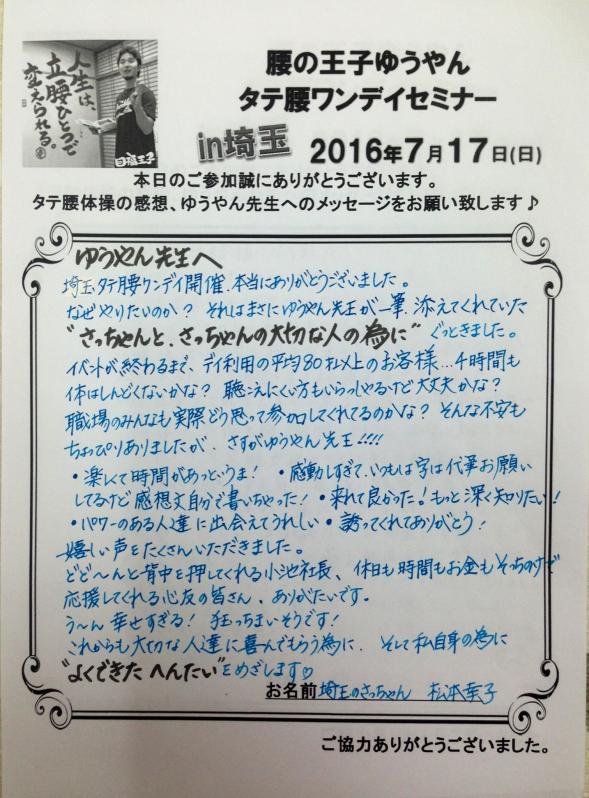 人生は、
立腰ひとつで
変えられる。
目指王子
腰の王子ゆうやん
タテ腰ワンデイセミナー
in埼玉
2016年7月17日(日)
本日のご参加誠にありがとうございます。
タテ腰体操の感想、ゆうやん先生へのメッセージをお願い致します♪
ゆうやん先生へ
埼玉タテ腰ワンデイ開催、本当にありがとうございました。
なぜやりたいのか? それはまさにゆうやん先生が一筆、添えてくれていた
"さっちゃんと、さっちゃんの大切な人の為に" ぐっときました。
イベントが終わるまで、デイ利用の平均80才以上のお客様…4時間も
体はしんどくないかな? 聴こえにくい方もいらっしゃるけど大丈夫かな?
職場のみんなも実際どう思って参加してくれてるのかな? そんな不安も
ちょっぴりありましたが、さすがゆうやん先生!!!!
・楽しくて時間があっというま! ・感動しすぎて、いつもは字は代筆お願い
してるけど感想文自分で書いちゃった! ・来れて良かった! もっと深く知りたい!
・パワーのある人達に出会えてうれしい ・誘ってくれてありがとう!
嬉しい声をたくさんいただきました。
どど〜んと背中を押してくれる小池社長、休日も時間もお金もそっちのけで
応援してくれる心友の皆さん、ありがたいです。
う〜ん幸せすぎる! 狂っちまいそうです!
これからも大切な人達に喜んでもらう為に、そして私自身の為に
"よくできた へんたい"をめざします♡
お名前 埼玉のさっちゃん 松本幸子
ご協力ありがとうございました。